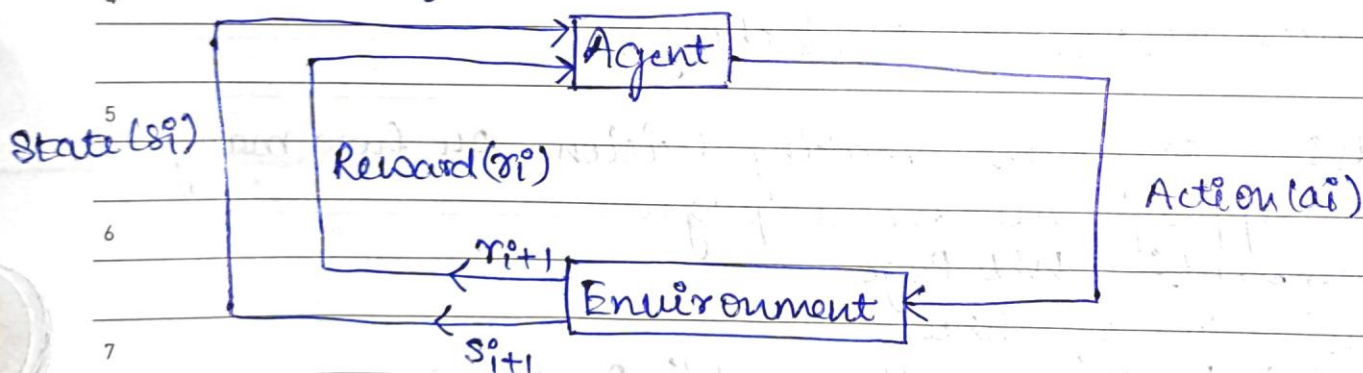 Agent
5
State (si)
Reward (ri)
Action (ai)
6
ri+1
Environment
si+1
7